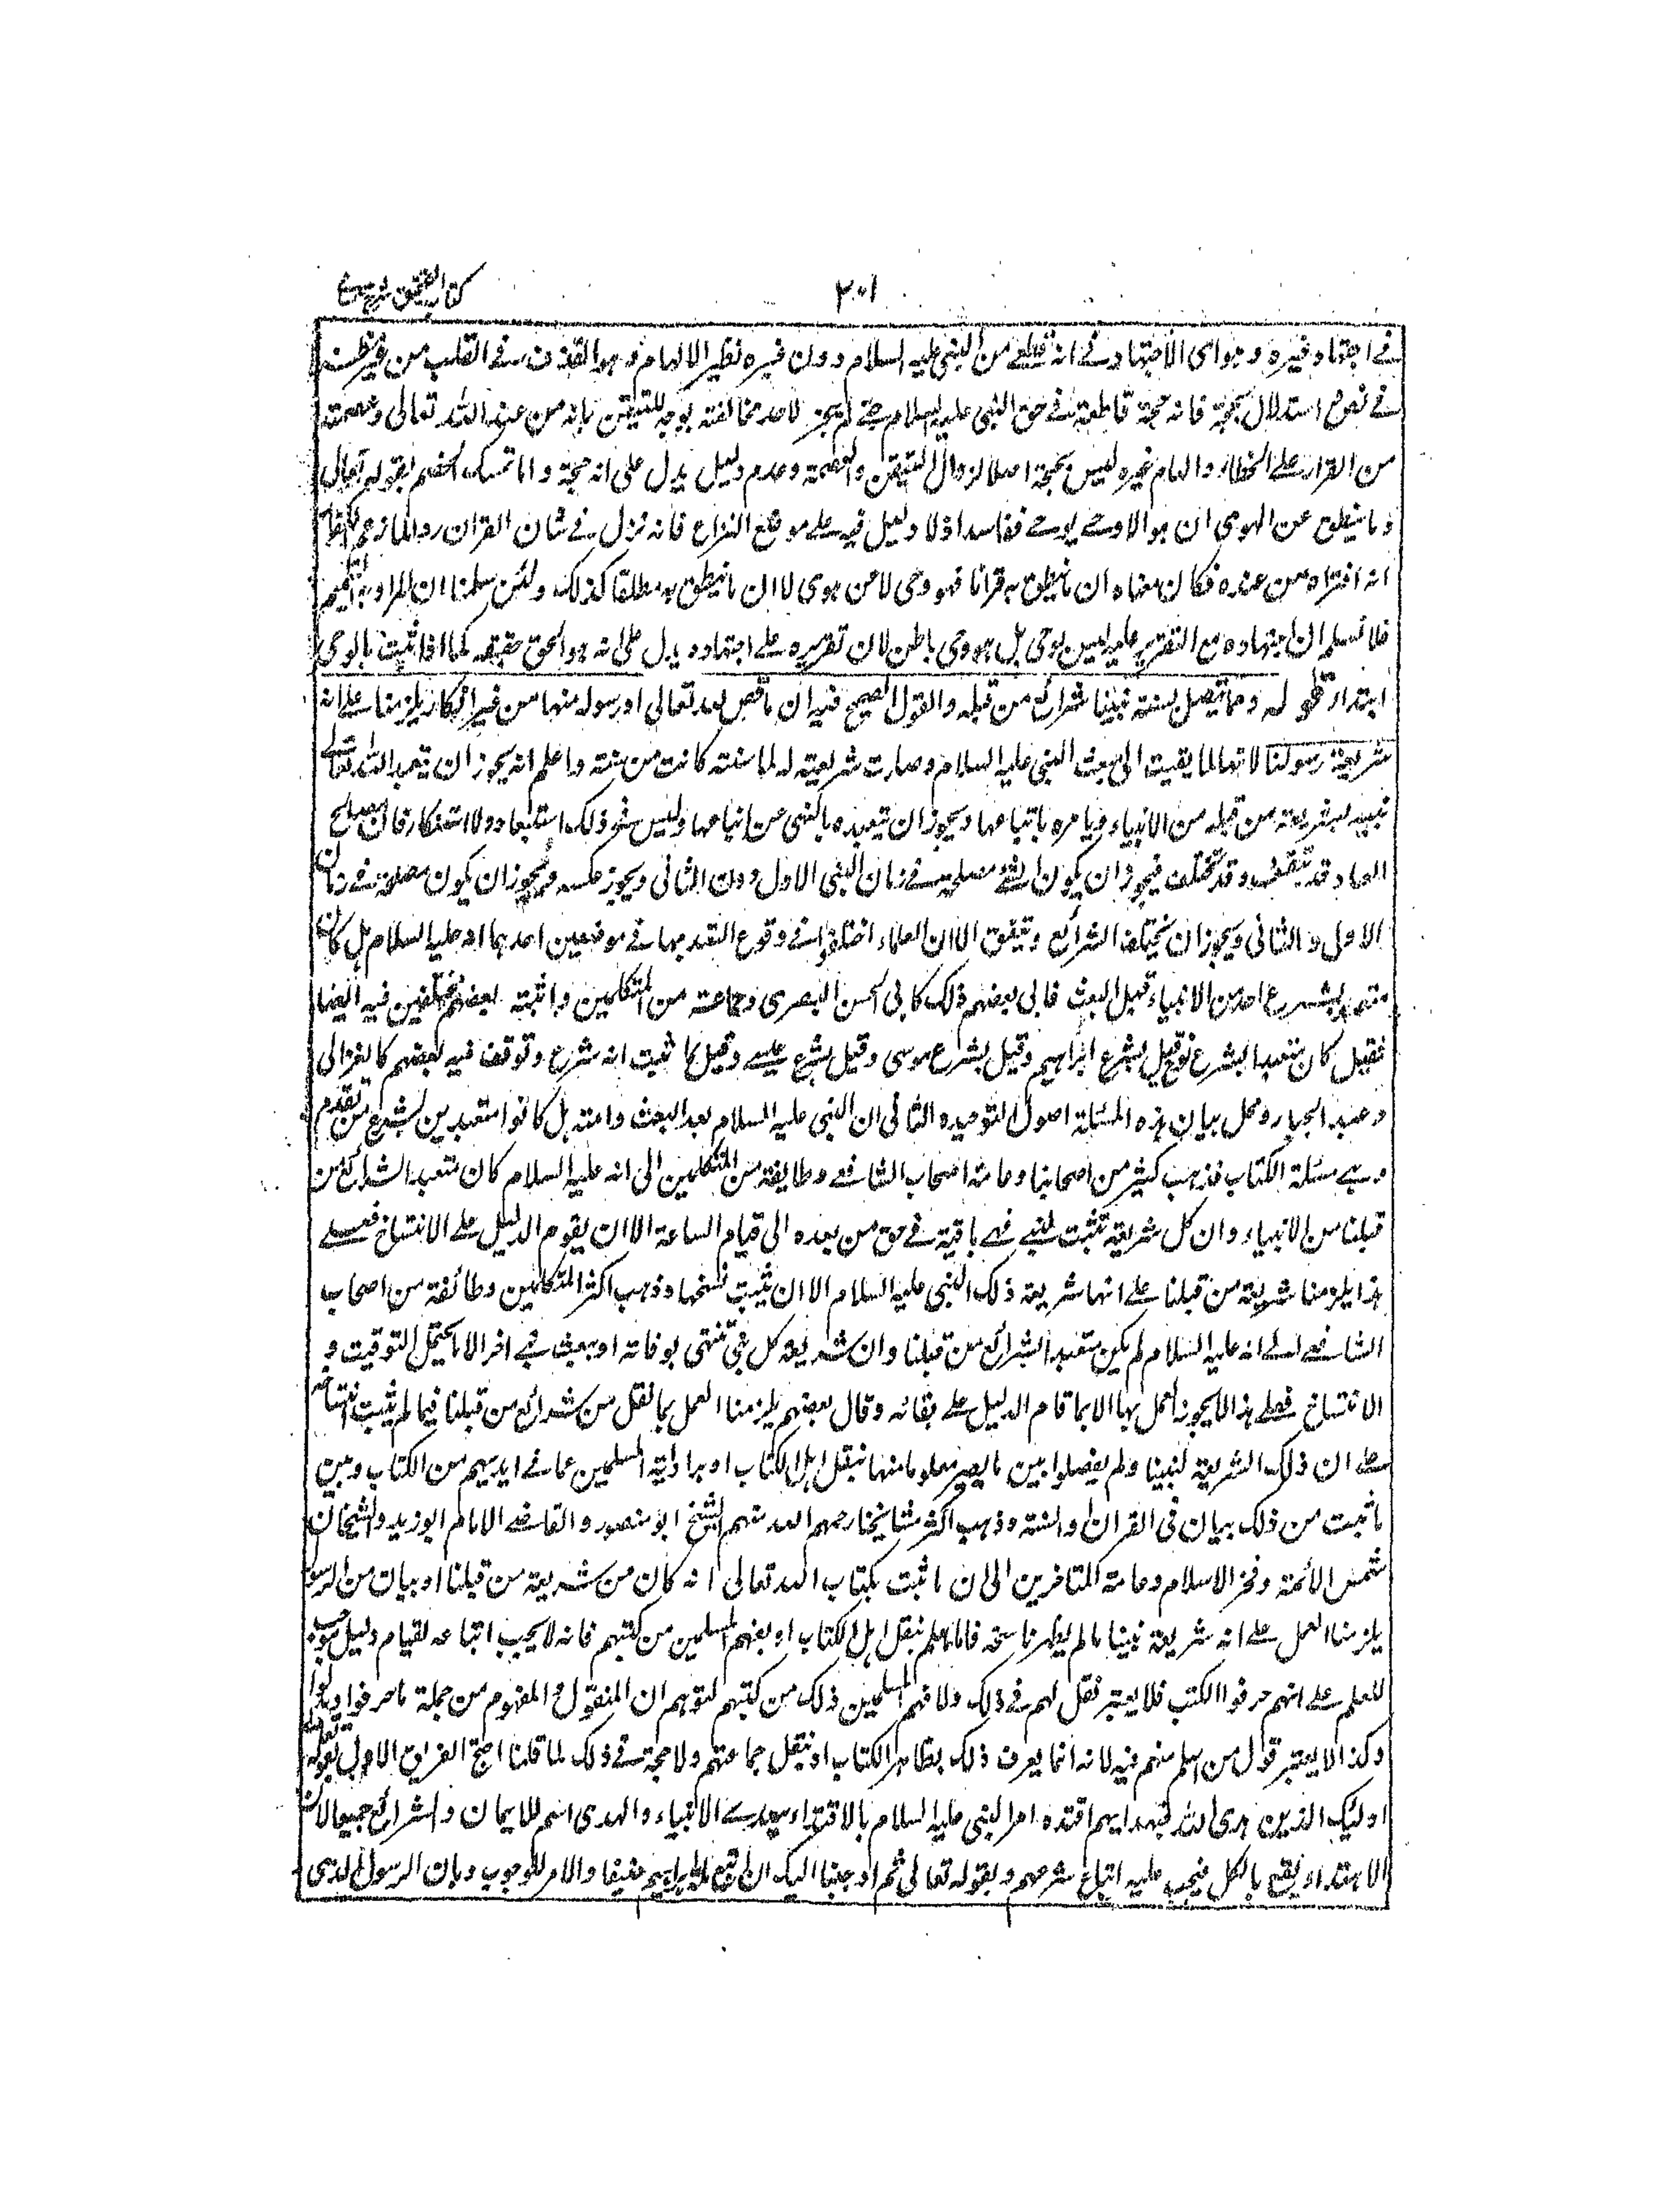 ٢٠١
كتاب التحقيق
في اجتهاد غيره وهو اى الاجتهاد في انه قطعي من النبي عليه السلام دون غيره نظير الالهام وهو القذف في القلب من غير نظر
في نفوع استدلال بحجة فانه حجة قاطعة في حق النبي عليه السلام حتى لم يجز لاحد مخالفته بوجه للتيقن بانه من عند الله تعالى وعصمته
من القرار على الخطاء والهام غيره ليس بحجة اصلا لزوال التيقن والعصمة وعدم دليل يدل على انه حجة واما تمسك الخصم بقوله تعالى
وما ينطق عن الهوى ان هو الا وحى يوحى ففاسد اذ لا دليل فيه على موضع النزاع فانه نزل في شان القران ردا لما زعم الكفار
انه افتراه من عنده فكان معناه ان ما ينطق به قرانا فهو وحى لا عن هوى لا ان ما ينطق به مطلقا كذلك ولئن سلمنا ان المراد به التعميم
فلا نسلم ان اجتهاده مع التقرير عليه ليس بوحى بل هو وحى باطن لان تقريره على اجتهاده يدل على انه هو الحق حقيقة كما اذا ثبت بالوحى
ابتداء قوله ومما يتصل بسنة نبينا شرائع من قبله والقول الصحيح فيه ان ما قص الله تعالى او رسوله منها من غير انكار يلزمنا على انه
شريعة رسولنا لانها لما بقيت الى مبعث النبي عليه السلام وصارت شريعة له لما سنته كانت من سنته واعلم انه يجوز ان يتعبد الله تعالى
نبيه بشريعة من قبله من الانبياء ويامره باتباعها ويجوز ان يتعبده بالنهى عن اتباعها وليس في ذلك استبعاد ولا استنكار فان مصالح
العباد قد تتفق وقد تختلف فيجوز ان يكون الشئ مصلحة في زمان النبي الاول دون الثانى ويجوز عكسه ويجوز ان يكون مصلحة في زمان
الاول والثانى ويجوز ان تختلف الشرائع وتتفق الا ان العلماء اختلفوا في وقوع التعبد بها في موضعين احدهما انه عليه السلام هل كان
متعبدا بشرع احد من الانبياء قبل البعث فابى بعضهم ذلك كابى الحسن البصرى وجماعة من المتكلمين واثبته بعضهم مختلفين فيه ايضا
فقيل كان متعبدا بشرع نوح وقيل بشرع ابراهيم وقيل بشرع موسى وقيل بشرع عيسى وقيل بما ثبت انه شرع وتوقف فيه بعضهم كالغزالى
وعبد الجبار ومحل بيان هذه المسئلة اصول التوحيد والثانى ان النبي عليه السلام بعد البعث وامته هل كانوا متعبدين بشرع من تقدم
وهى مسئلة الكتاب فذهب كثير من اصحابنا وعامة اصحاب الشافعى وطايفة من المتكلمين الى انه عليه السلام كان متعبدا بشرائع من
قبلنا من الانبياء وان كل شريعة تثبت لنبى فهى باقية في حق من بعده الى قيام الساعة الا ان يقوم الدليل على الانتساخ فعلى
هذا يلزمنا شريعة من قبلنا على انها شريعة ذلك النبي عليه السلام الا ان يثبت نسخها وذهب اكثر المتكلمين وطائفة من اصحاب
الشافعى الى انه عليه السلام لم يكن متعبدا بشرائع من قبلنا وان شريعة كل نبى تنتهى بوفاته او ببعث نبى اخر الا ما لا يحتمل التوقيت و
الانتساخ فعلى هذا لا يجوز العمل بها الا بما قام الدليل على بقائه وقال بعضهم يلزمنا العمل بما نقل من شرائع من قبلنا فيما لم يثبت انتساخه
على ان ذلك الشريعة لنبينا ولم يفصلوا بين ما يصير معلوما منها بنقل اهل الكتاب او برواية المسلمين عما في ايديهم من الكتاب وبين
ما ثبت من ذلك ببيان فى القران والسنة وذهب اكثر مشايخنا رحمهم الله منهم الشيخ ابو منصور والقاضى الامام ابو زيد والشيخان
شمس الائمة وفخر الاسلام وعامة المتاخرين الى ان ما ثبت بكتاب الله تعالى انه كان من شريعة من قبلنا او ببيان من الرسول
يلزمنا العمل على انه شريعة نبينا ما لم يظهر ناسخه فاما ما علم بنقل اهل الكتاب او بفهم المسلمين من كتبهم فانه لا يجب اتباعه لقيام دليل موجب
للعلم على انهم حرفوا الكتب فلا يعتبر نقلهم في ذلك ولا فهم المسلمين ذلك من كتبهم لتوهم ان المنقول او المفهوم من جملة ما حرفوا وبدلوا
وكذا لا يعتبر قول من اسلم منهم فيه لانه انما يعرف ذلك بظاهر الكتاب او بنقل جماعتهم ولا حجة في ذلك لما قلنا احتج الفريق الاول بقوله تعالى
اولئك الذين هدى الله فبهداهم اقتده امر النبي عليه السلام بالاقتداء بهدى الانبياء والهدى اسم للايمان والشرائع جميعا لان
الاهتداء يقع بالكل فيجب عليه اتباع شرعهم وبقوله تعالى ثم اوحينا اليك ان اتبع ملة ابراهيم حنيفا والامر للوجوب وبان الرسول الذى